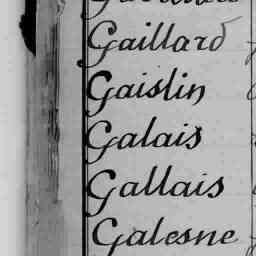 Gaillard
Gaislin
Galais
Gallais
Galesne